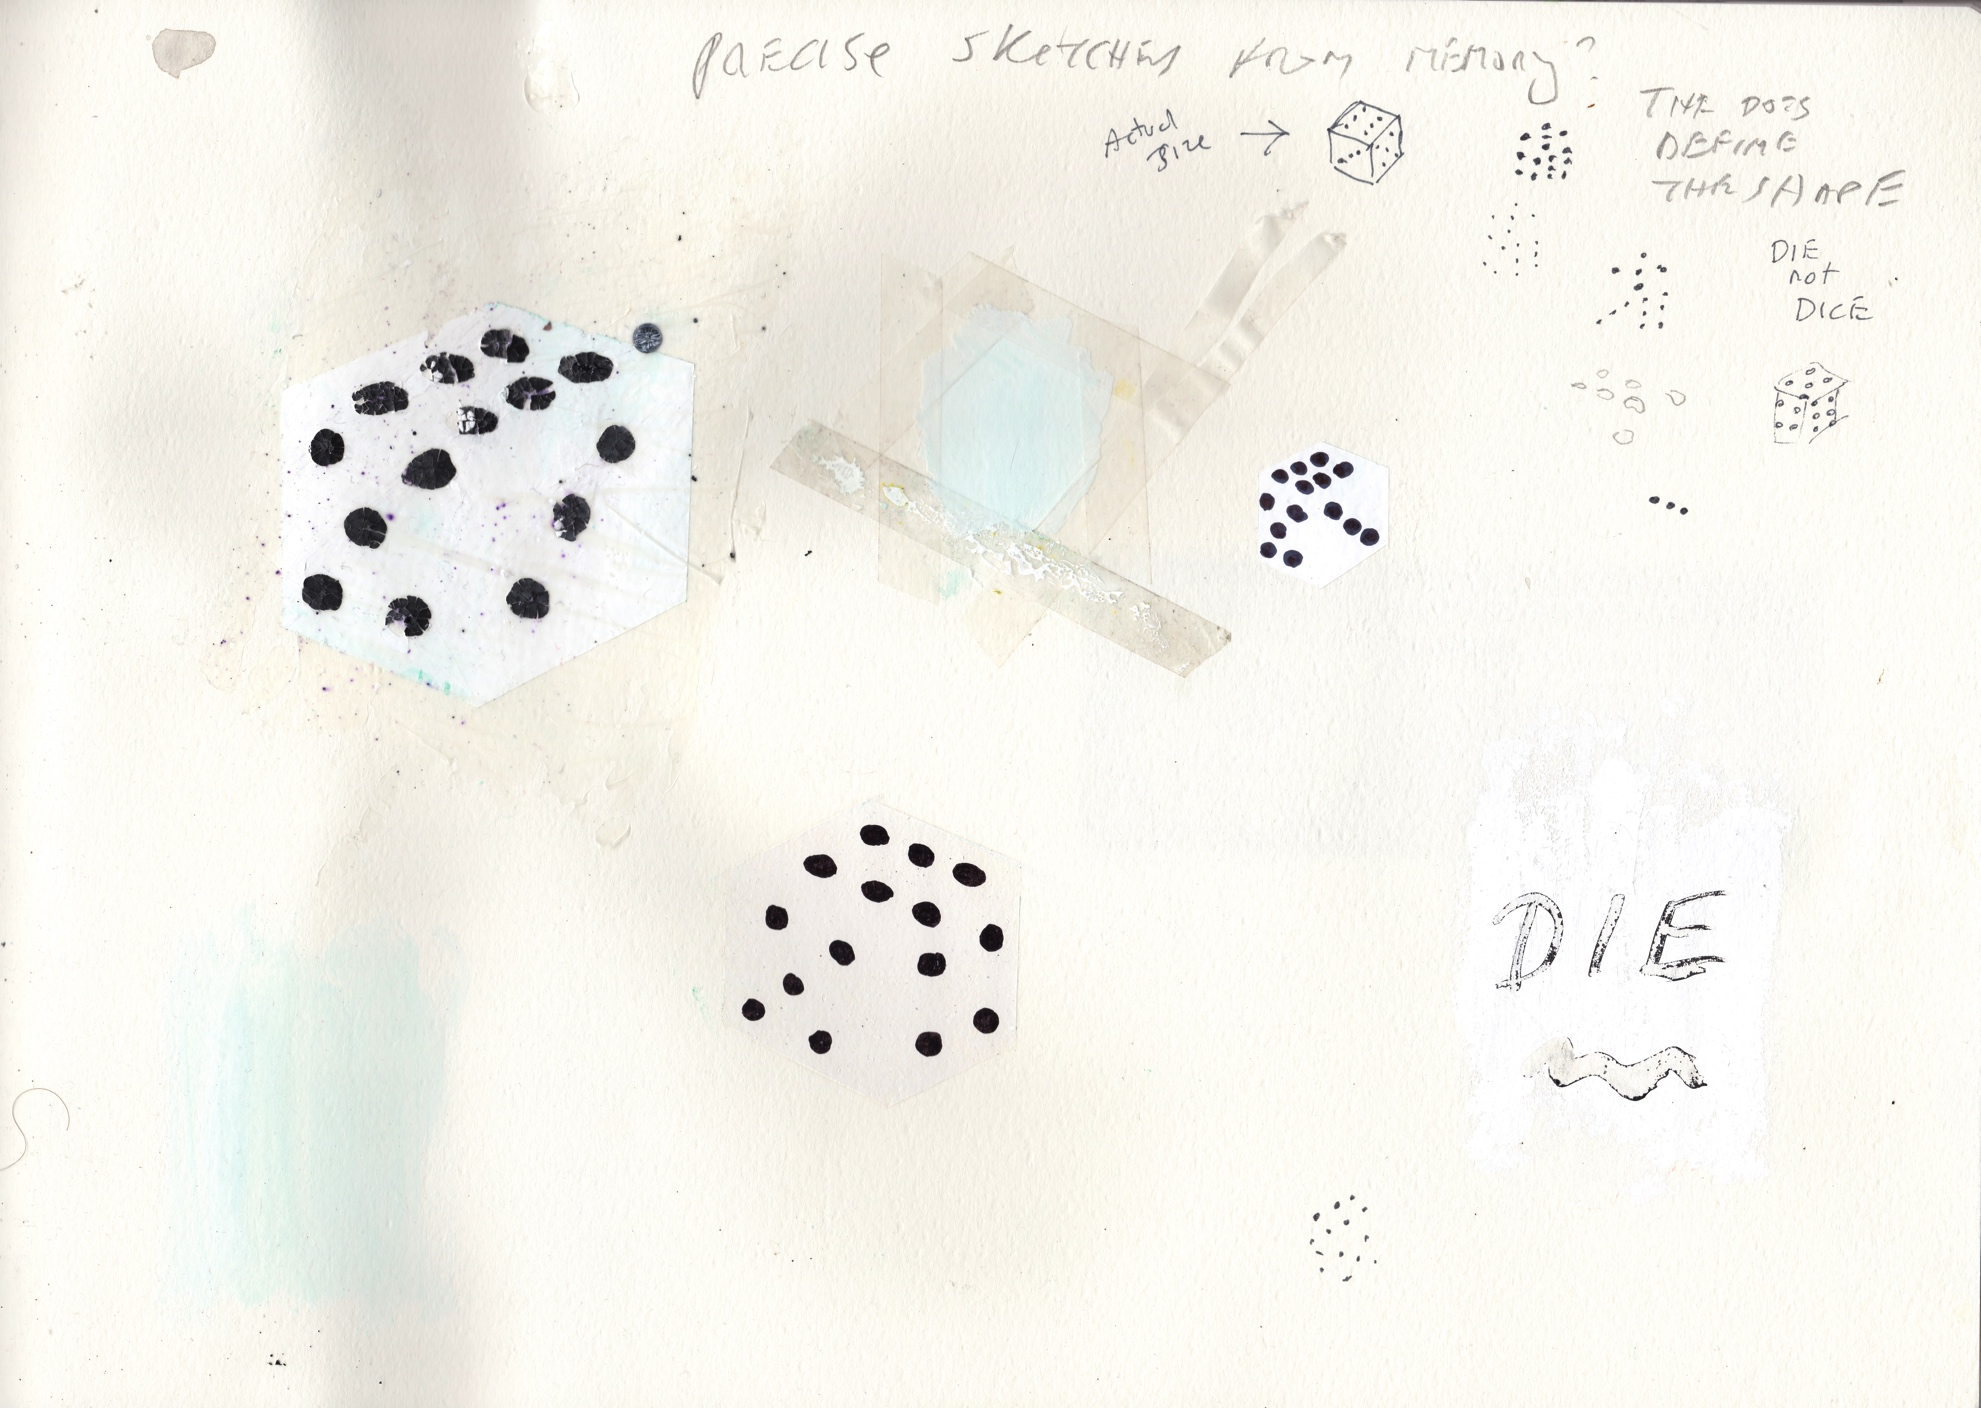 PRECISE SKETCHES FROM MEMORY?
Actual
size →
THE DOTS
DEFINE
THE SHAPE
DIE
not
DICE
DIE